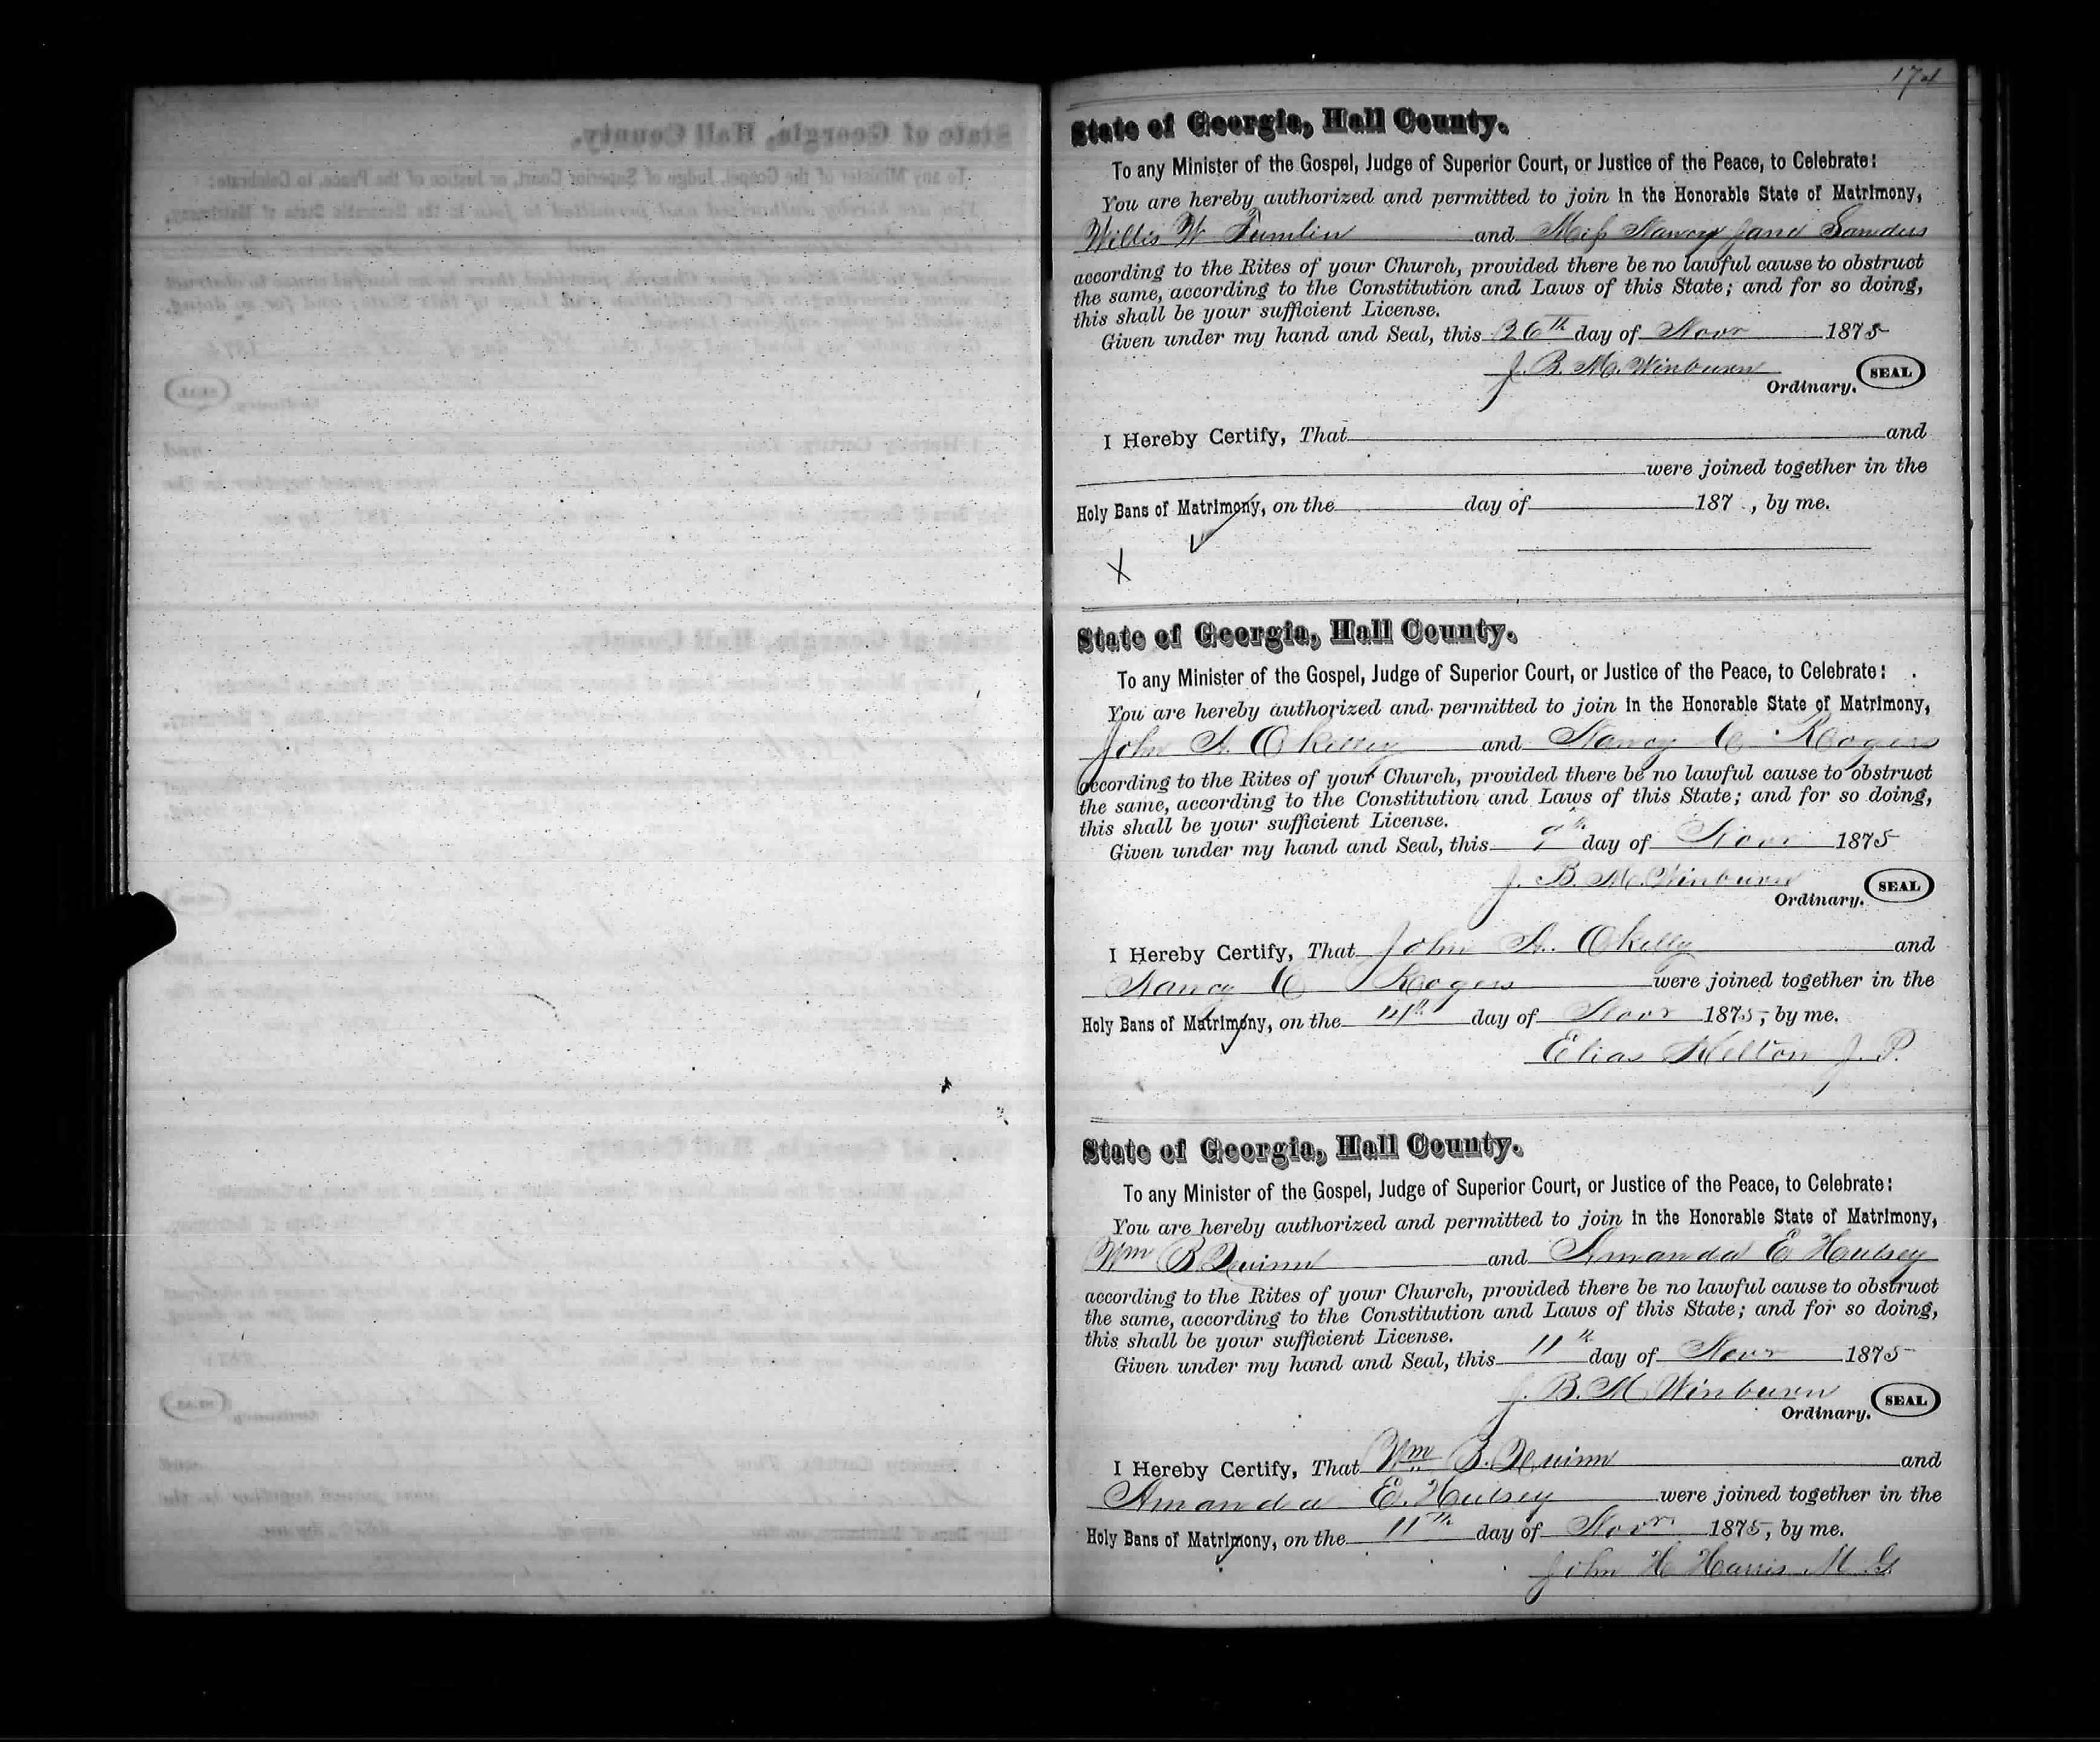 174
State of Georgia, Hall County.
To any Minister of the Gospel, Judge of Superior Court, or Justice of the Peace, to Celebrate:
You are hereby authorized and permitted to join in the Honorable State of Matrimony,
Willis W Tumlin and Miss Nancy Jane Sanders
according to the Rites of your Church, provided there be no lawful cause to obstruct
the same, according to the Constitution and Laws of this State; and for so doing,
this shall be your sufficient License.
Given under my hand and Seal, this 26th day of Novr 1875
J. B. M. Winburn
Ordinary. SEAL
I Hereby Certify, That and
were joined together in the
Holy Bans of Matrimony, on the day of 187 , by me.
X
State of Georgia, Hall County.
To any Minister of the Gospel, Judge of Superior Court, or Justice of the Peace, to Celebrate:
You are hereby authorized and permitted to join in the Honorable State of Matrimony,
John A. OKelley and Nancy C Rogers
according to the Rites of your Church, provided there be no lawful cause to obstruct
the same, according to the Constitution and Laws of this State; and for so doing,
this shall be your sufficient License.
Given under my hand and Seal, this day of Novr 1875
J. B. M. Winburn
Ordinary. SEAL
I Hereby Certify, That John A. OKelly and
Nancy C Rogers were joined together in the
Holy Bans of Matrimony, on the day of Novr 1875, by me.
Elias Kelton J. P.
State of Georgia, Hall County.
To any Minister of the Gospel, Judge of Superior Court, or Justice of the Peace, to Celebrate:
You are hereby authorized and permitted to join in the Honorable State of Matrimony,
Wm B Quinn and Amanda E Hulsey
according to the Rites of your Church, provided there be no lawful cause to obstruct
the same, according to the Constitution and Laws of this State; and for so doing,
this shall be your sufficient License.
Given under my hand and Seal, this 11th day of Novr 1875
J. B. M Winburn
Ordinary. SEAL
I Hereby Certify, That Wm B. Quinn and
Amanda E. Hulsey were joined together in the
Holy Bans of Matrimony, on the 11th day of Novr 1875, by me.
John H Harris M. G.